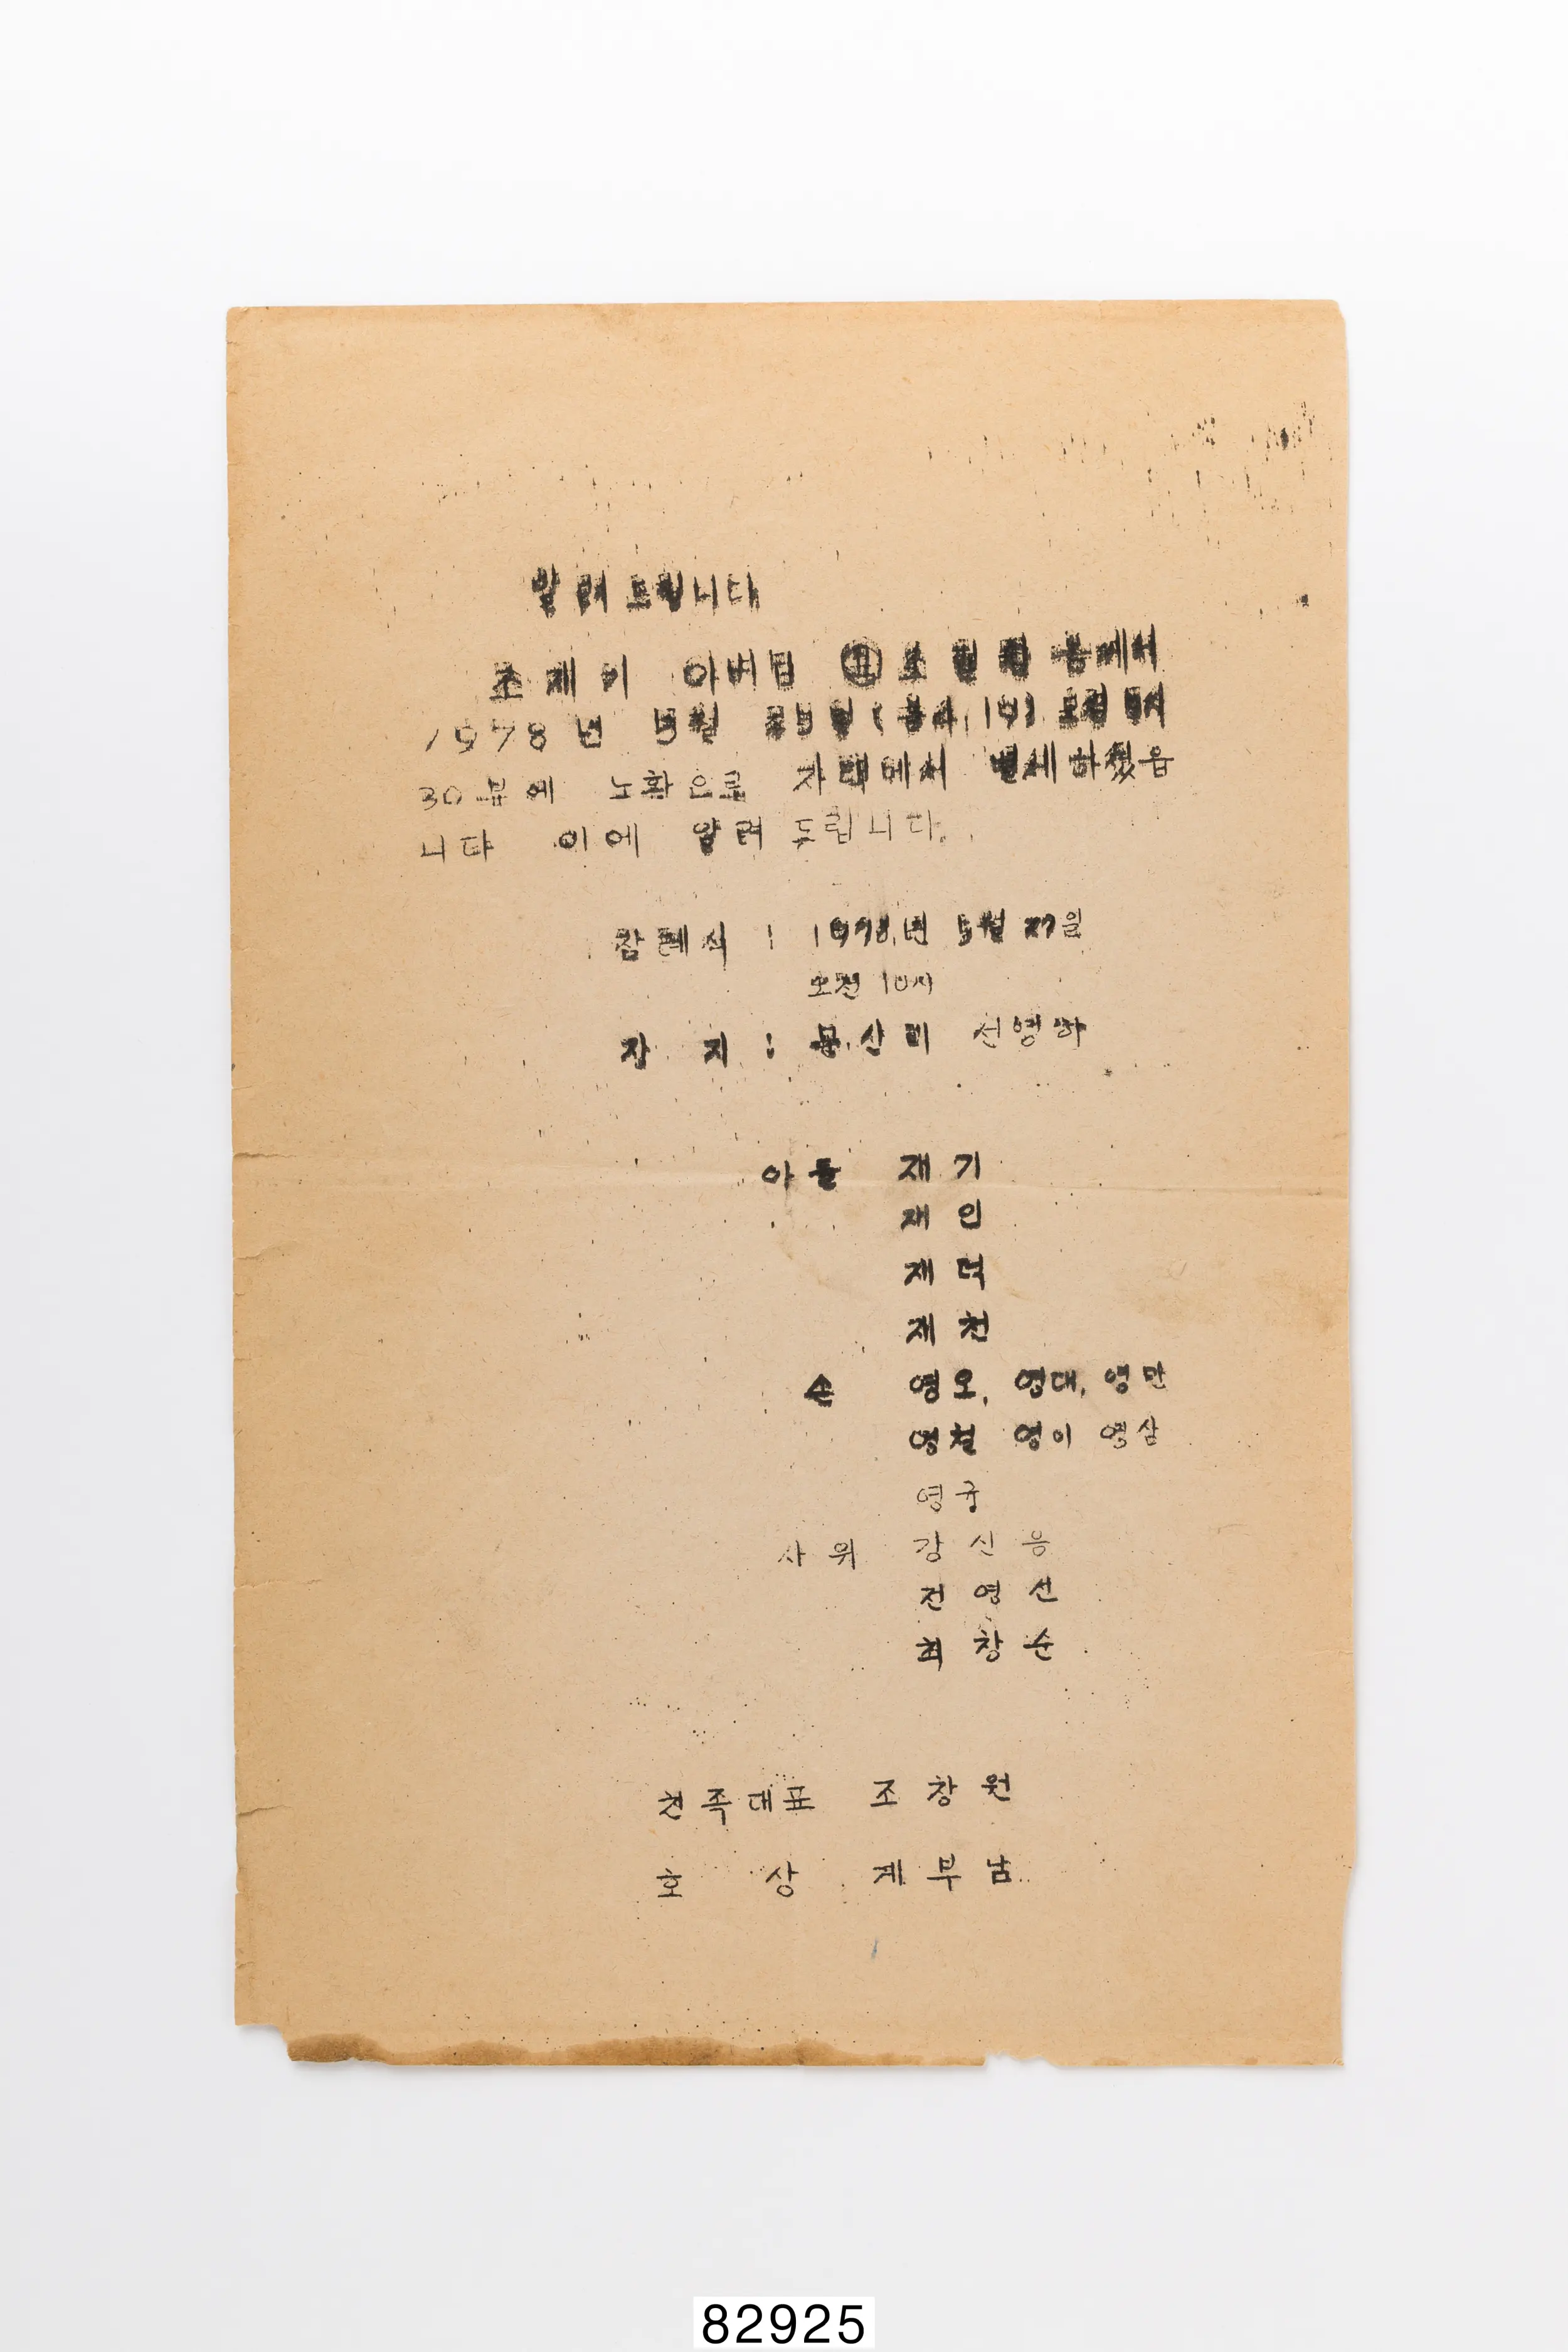 알려드립니다
조재기 아버님 조 공께서
1978년 5월 25일 (음4.19) 오전
30분에 노환으로 자택에서 별세하셨읍
니다 이에 알려드립니다.
장례식 : 1978.년 5월 27일
오전 10시
장 지 : 몽산리 선영하
아들 재기
재인
재덕
재천
손 영오, 영대, 영만
영철 영이 영삼
영구
사위 강신응
전영선
최창순
친족대표 조창원
호 상 계부남
82925